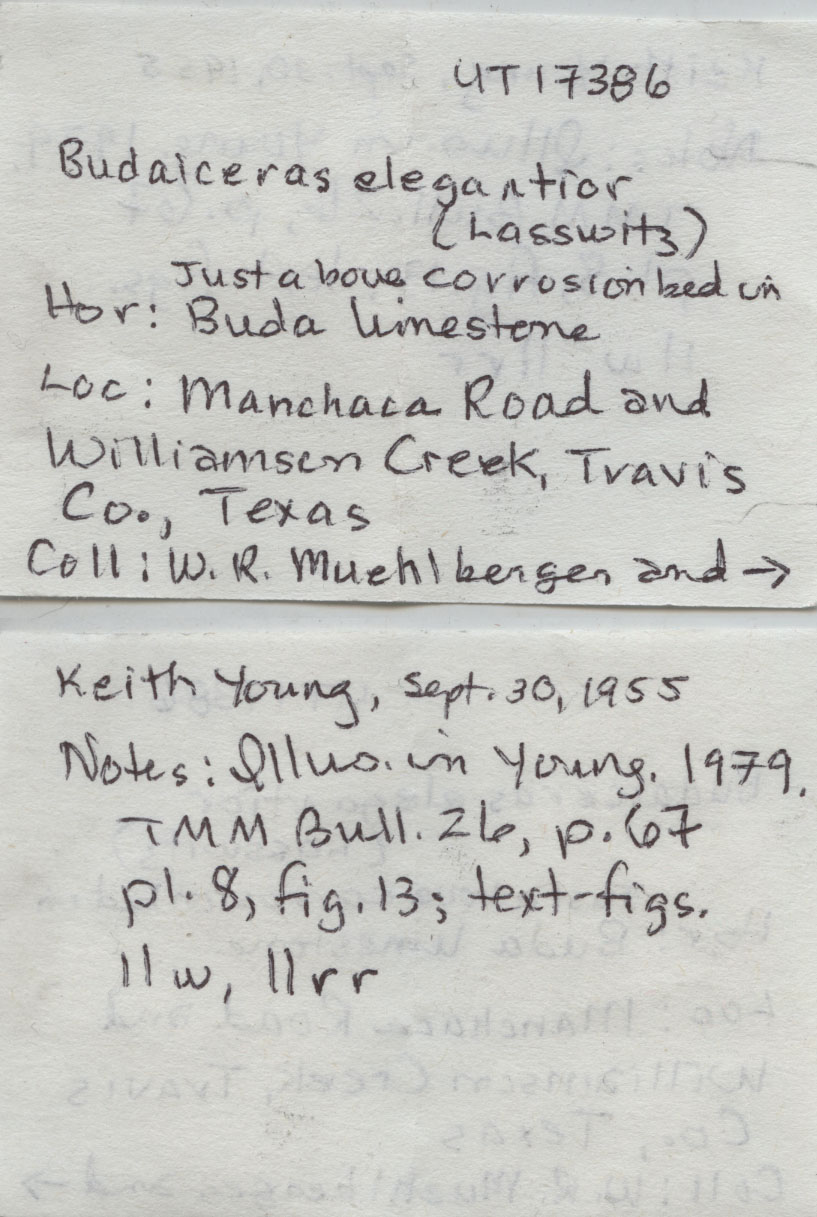 UT17386
Budaiceras elegantior
(Lasswitz)
Just above corrosion bed in
Hor: Buda limestone
Loc: Manchaca Road and
Williamson Creek, Travis
Co., Texas
Coll: W. R. Muehlberger and →
Keith Young, Sept. 30, 1955
Notes: Illus. in Young. 1979.
TMM Bull. 26, p. 67
pl. 8, fig. 13; text-figs.
11w, 11rr